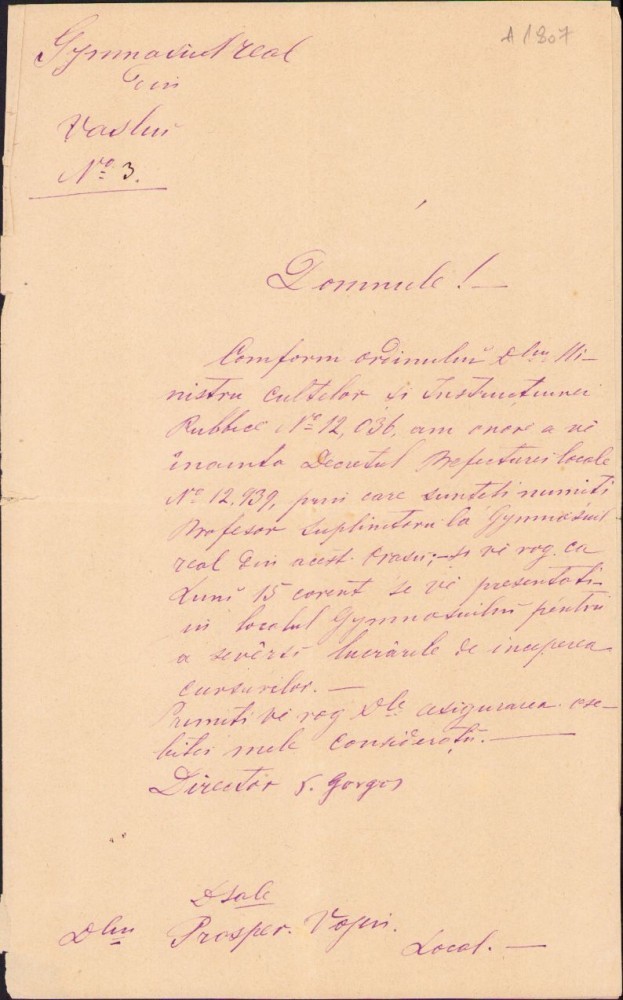 A 1807
Gymnasiul real
din
Vaslui
No 3.
Domnule! —
Comform ordinului Dlui Mi-
nistru cultelor și Instrucțiunei
Publice No 12,036, am onore a vĕ
înainta Decretul Prefecturei locale
No 12.939, prin care sunteti numiti
Profesor suplinitoru la Gymnasiul
real din acest orasu; — si vĕ rog ca
Luni 15 corent se vĕ presentati
in localul Gymnasiului pentru
a severși lucrările de inceperea
cursurilor. —
Primiti vĕ rog Dle asigurarea ose-
bitei mele considerații. —
Director S. Gorgos
Dsale
Dlui Prosper.
Local. —